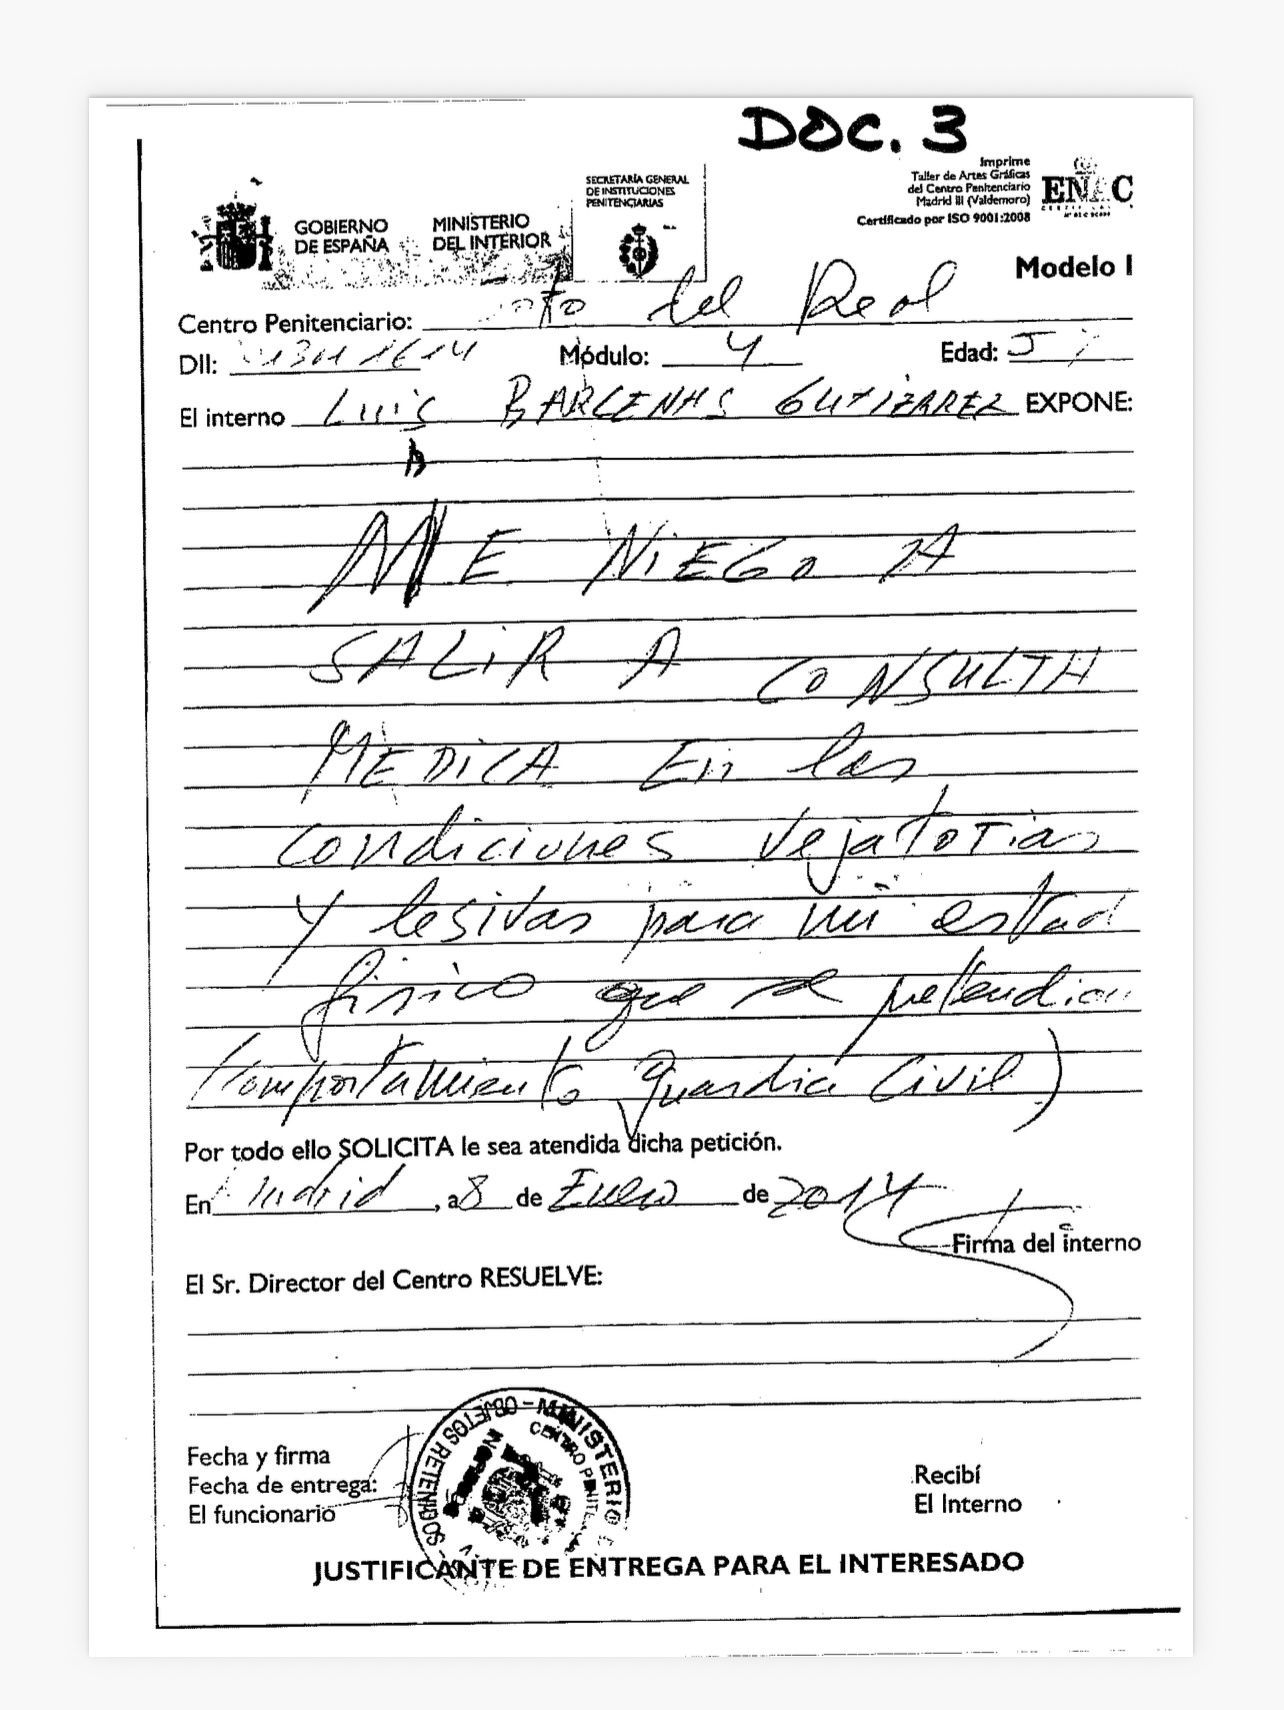 DOC. 3
Imprime
Taller de Artes Gráficas
del Centro Penitenciario
Madrid III (Valdemoro)
Certificado por ISO 9001:2008
ENAC
GOBIERNO
DE ESPAÑA
MINISTERIO
DEL INTERIOR
SECRETARÍA GENERAL
DE INSTITUCIONES
PENITENCIARIAS
Modelo I
Centro Penitenciario: del Real
DII: Módulo: 4 Edad:
El interno Luis BARCENAS GUTIERREZ EXPONE:
ME NiEGO A
SALiR A CONSULTA
MEDiCA En las
condiciones vejatorias
y lesivas para mi estad
fisico que se pretendian
(comportamiento guardia Civil)
Por todo ello SOLICITA le sea atendida dicha petición.
En Madrid, a 8 de Enero de 2014
Firma del interno
El Sr. Director del Centro RESUELVE:
Fecha y firma
Fecha de entrega:
El funcionario
OBJETOS RETENIDOS - MINISTERIO
CENTRO
Recibí
El Interno
JUSTIFICANTE DE ENTREGA PARA EL INTERESADO